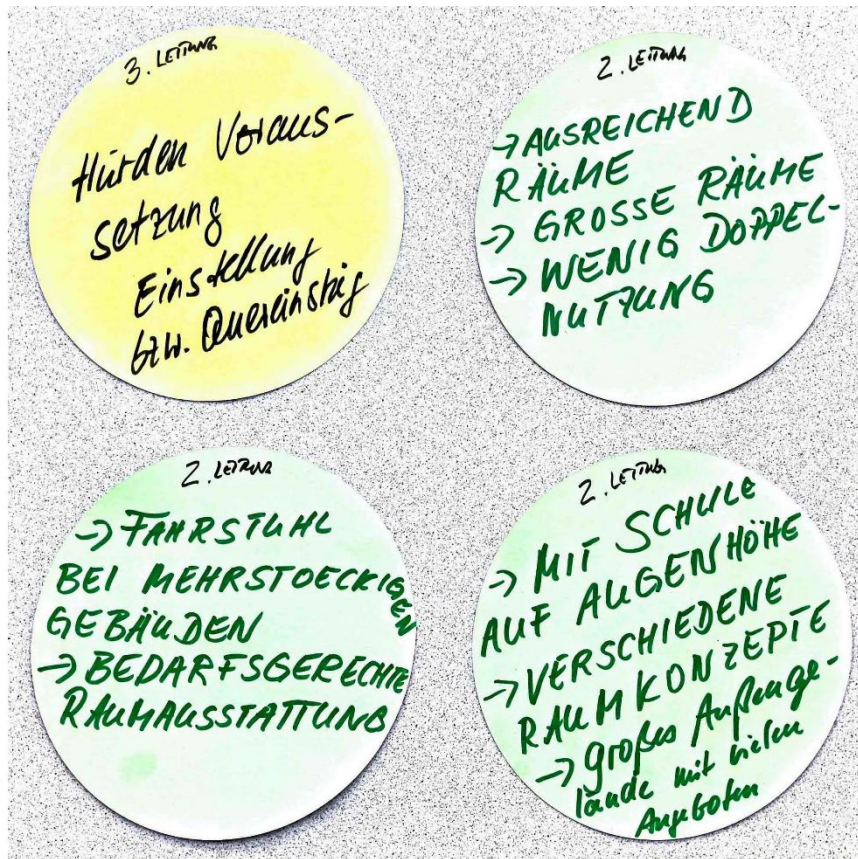 3. LEITUNG
Hürden Voraus-
setzung
Einstellung
bzw. Quereinstieg
2. LEITUNG
→ AUSREICHEND
RÄUME
→ GROSSE RÄUME
→ WENIG DOPPEL-
NUTZUNG
2. LEITUNG
→ FAHRSTUHL
BEI MEHRSTOECKIGEN
GEBÄUDEN
→ BEDARFSGERECHTE
RAUMAUSSTATTUNG
2. LEITUNG
→ MIT SCHULE
AUF AUGENHÖHE
→ VERSCHIEDENE
RAUMKONZEPTE
→ großes Außenge-
lände mit vielen
Angeboten